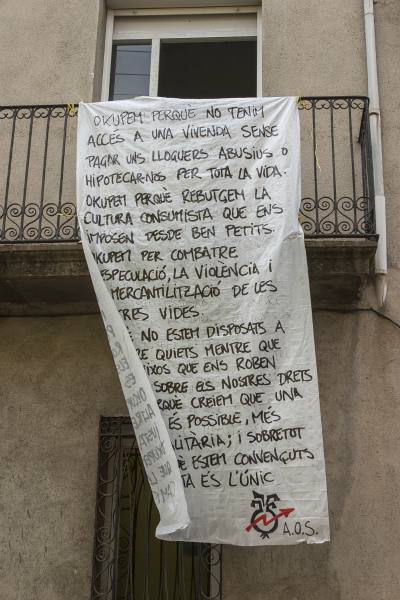 OKUPEM PERQUÈ NO TENIM
ACCÉS A UNA VIVENDA SENSE
PAGAR UNS LLOGUERS ABUSIUS O
HIPOTECAR-NOS PER TOTA LA VIDA.
OKUPEM PERQUÈ REBUTGEM LA
CULTURA CONSUMISTA QUE ENS
IMPOSEN DESDE BEN PETITS.
OKUPEM PER COMBATRE
ESPECULACIÓ, LA VIOLENCIA I
MERCANTILITZACIÓ DE LES
VIDES.
NO ESTEM DISPOSATS A
QUIETS MENTRE QUE
QUE ENS ROBEN
SOBRE ELS NOSTRES DRETS
CREIEM QUE UNA
ÉS POSSIBLE, MÉS
I SOBRETOT
ESTEM CONVENÇUTS
ÉS L'ÚNIC
A.O.S.